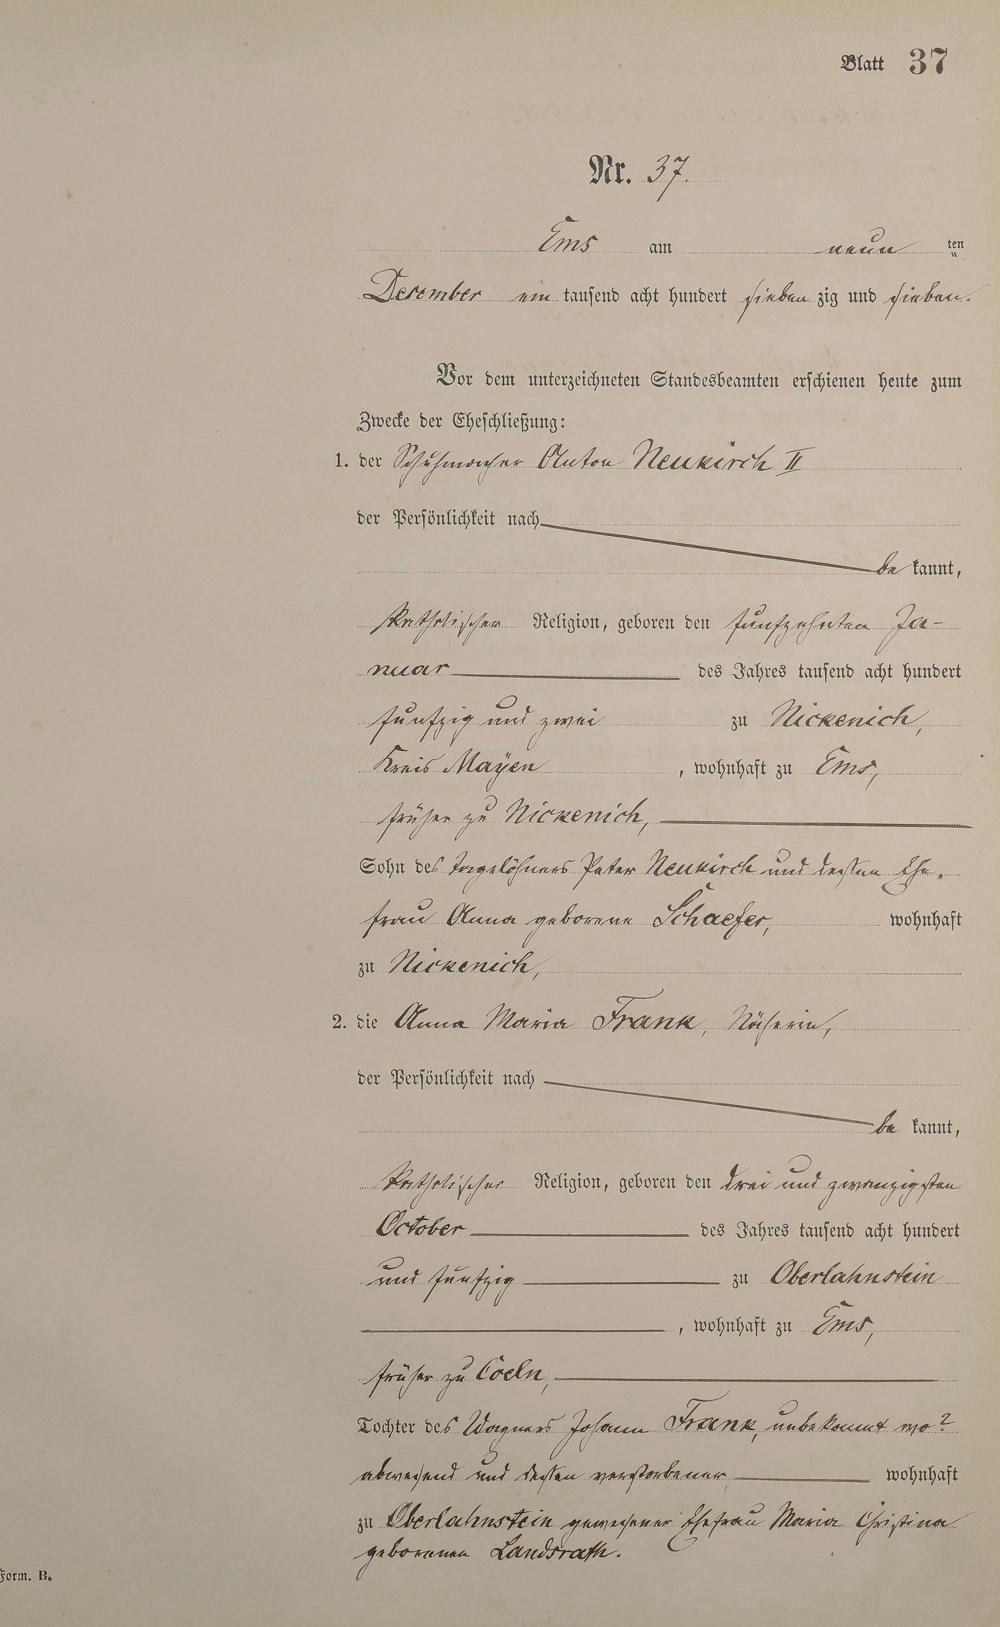 Blatt 37
Nr. 37.
Ems am neun ten
December ein tausend acht hundert sieben zig und sieben.
Vor dem unterzeichneten Standesbeamten erschienen heute zum
Zwecke der Eheschließung:
1. der Schuhmacher Anton Neukirch II
der Persönlichkeit nach
be kannt,
katholischer Religion, geboren den fünfzehnten Ja-
nuar des Jahres tausend acht hundert
fünfzig und zwei zu Nickenich,
Kreis Mayen, wohnhaft zu Ems,
früher zu Nickenich,
Sohn des Tagelöhners Peter Neukirch und dessen Ehe-
frau Anna geborene Schaefer, wohnhaft
zu Nickenich,
2. die Anna Maria Frank, Näherin,
der Persönlichkeit nach
be kannt,
katholischer Religion, geboren den drei und zwanzigsten
October des Jahres tausend acht hundert
und fünfzig zu Oberlahnstein
, wohnhaft zu Ems,
früher zu Coeln,
Tochter des Wagners Johann Frank, unbekannt wo?
abwesend und dessen verstorbener wohnhaft
zu Oberlahnstein gewesener Ehefrau Maria Christina
geborenen Landsrath.
Form. B.